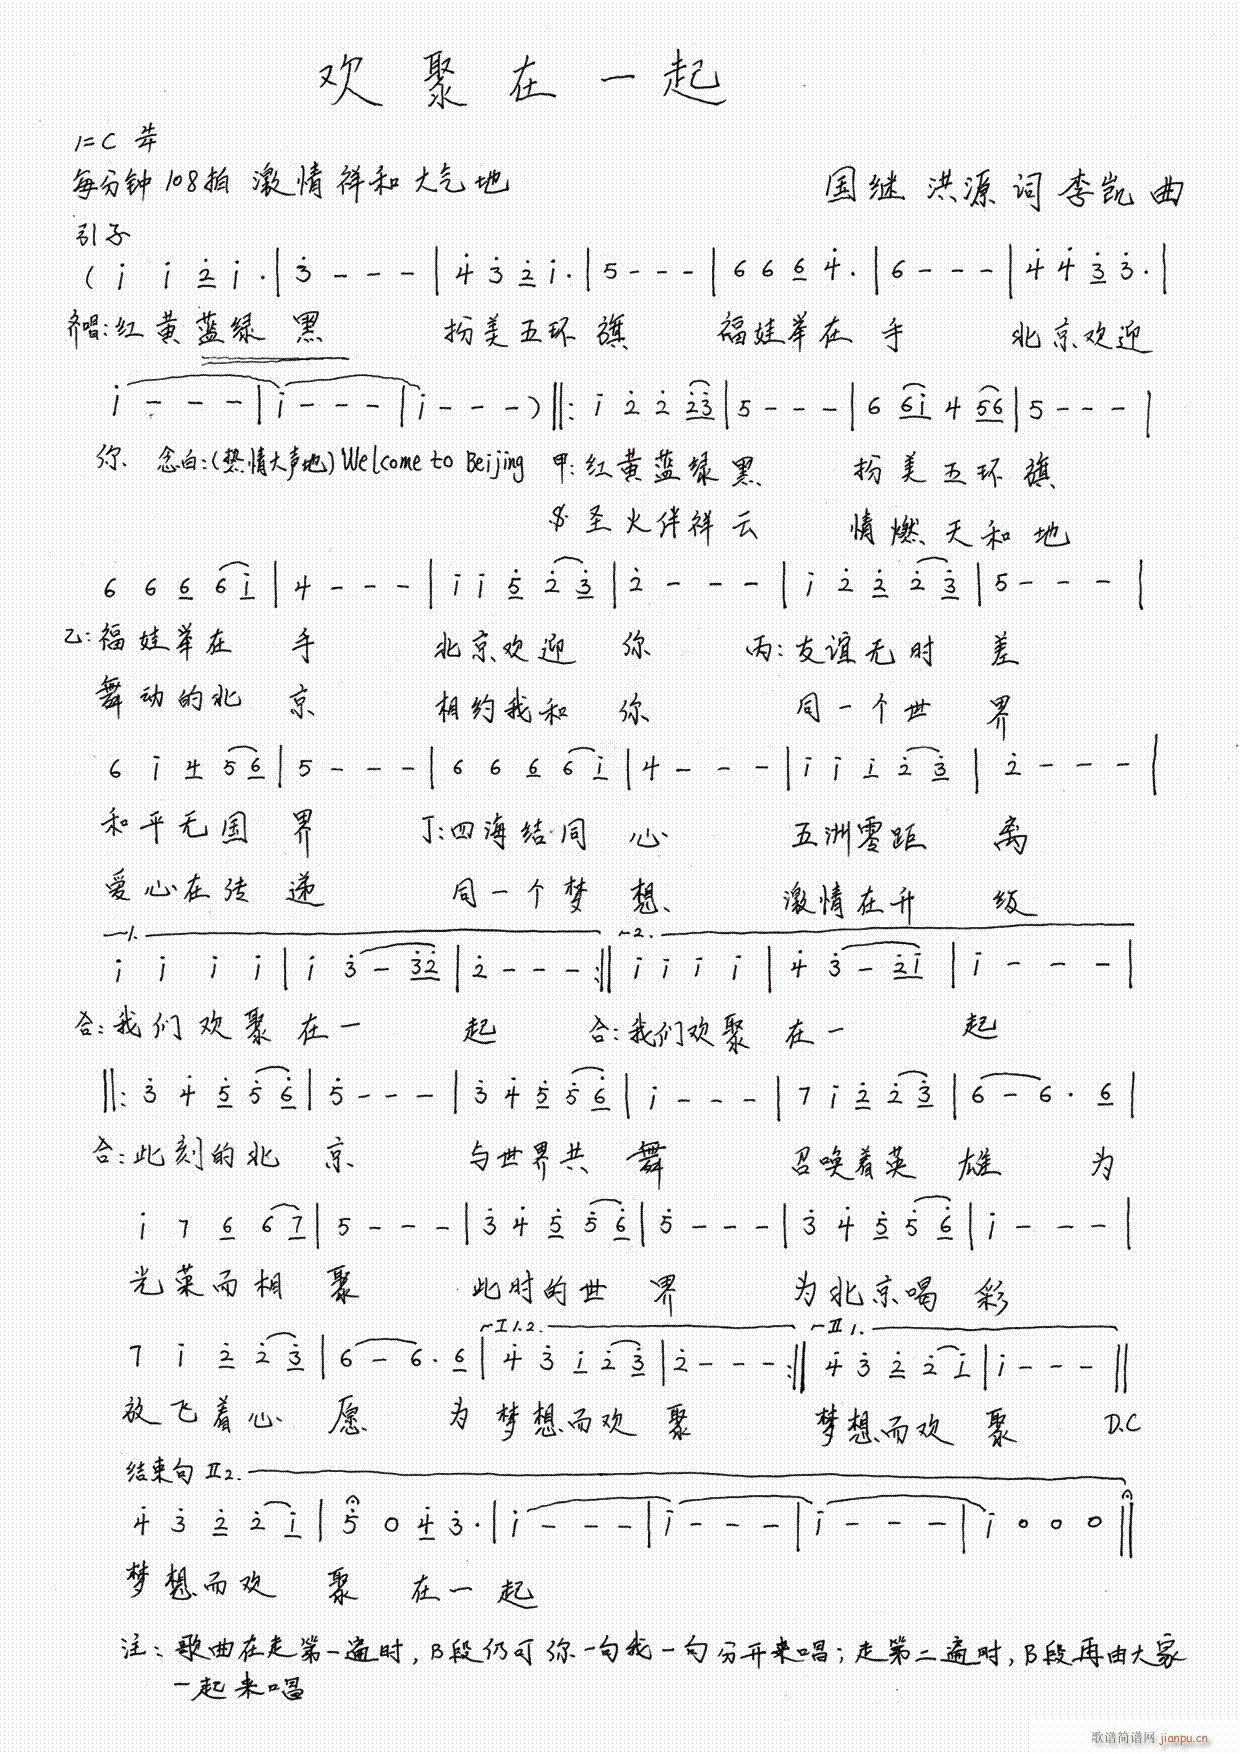 欢聚在一起
1=C 4/4
每分钟108拍 激情祥和大气地
国继 洪源 词 李凯 曲
引子
( i i 2̇ i · | 3̇ - - - | 4̇ 3̇ 2̇ i · | 5 - - - | 6 6 6 4̇ · | 6 - - - | 4̇ 4̇ 3̇ 3̇ · |
齐唱:红黄蓝绿 黑 扮美五环旗 福娃举在手 北京欢迎
i - - - | i - - - | i - - - ) ‖: i 2̇ 2̇ 2̇3̇ | 5 - - - | 6 6i 4 56 | 5 - - - |
你 念白:(热情大声地) Welcome to Beijing 甲:红黄蓝绿黑 扮美五环旗
圣火伴祥云 情燃天和地
6 6 6 6i | 4 - - - | i i 5̇ 2̇3̇ | 2̇ - - - | i 2̇ 2̇ 2̇3̇ | 5 - - - |
乙:福娃举在手 北京欢迎你 丙:友谊无时差
舞动的北京 相约我和你 同一个世界
6 i 4 56 | 5 - - - | 6 6 6 6i | 4 - - - | i i i 2̇3̇ | 2̇ - - - |
和平无国界 丁:四海结同心 五洲零距离
爱心在传递 同一个梦想 激情在升级
1. 2.
i i i i | i 3̇ - 3̇2̇ | 2̇ - - - :‖ i i i i | 4̇ 3̇ - 2̇i | i - - - |
合:我们欢聚在一起 合:我们欢聚在一起
‖: 3̇ 4̇ 5̇ 5̇6̇ | 5̇ - - - | 3̇ 4̇ 5̇ 5̇6̇ | i - - - | 7 i 2̇ 2̇3̇ | 6 - 6 · 6 |
合:此刻的北京 与世界共舞 召唤着英雄 为
i 7 6 67 | 5 - - - | 3̇ 4̇ 5̇ 5̇6̇ | 5̇ - - - | 3̇ 4̇ 5̇ 5̇6̇ | i - - - |
光荣而相聚 此时的世界 为北京喝彩
I 1.2. II 1.
7 i 2̇ 2̇3̇ | 6 - 6 · 6 | 4̇ 3̇ i 2̇3̇ | 2̇ - - - :‖ 4̇ 3̇ 2̇ 2̇i | i - - - ‖
放飞着心愿 为梦想而欢聚 梦想而欢聚 D.C
结束句 II 2.
4̇ 3̇ 2̇ 2̇i | 5̇ 0 4̇ 3̇ · | i - - - | i - - - | i - - - | i 0 0 0 ‖
梦想而欢聚 在一起
注:歌曲在走第一遍时,B段仍可你一句我一句分开来唱;走第二遍时,B段再由大家
一起来唱
歌谱简谱网 jianpu.cn